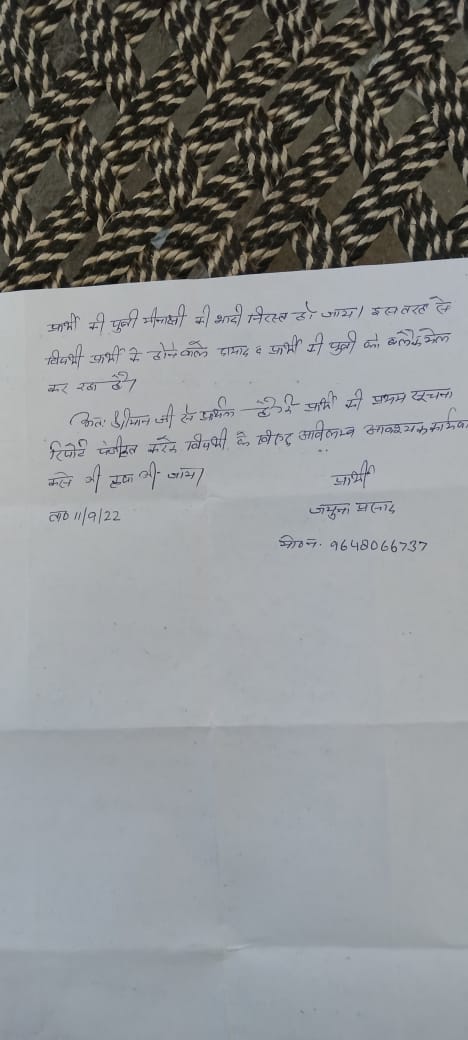 प्रार्थी की पुत्री मीनाक्षी की शादी निरस्त हो जाय। इस तरह से
विपक्षी प्रार्थी के होने वाले दामाद व प्रार्थी की पुत्री को ब्लैकमेल
कर रहा है।
अतः श्रीमान जी से प्रार्थना है कि प्रार्थी की प्रथम सूचना
रिपोर्ट पंजीकृत करके विपक्षी के विरुद्ध अविलम्ब आवश्यक कार्यवा
करने की कृपा की जाय।
प्रार्थी
ता० 11/9/22
जमुना प्रसाद
मो० न. 9648066737